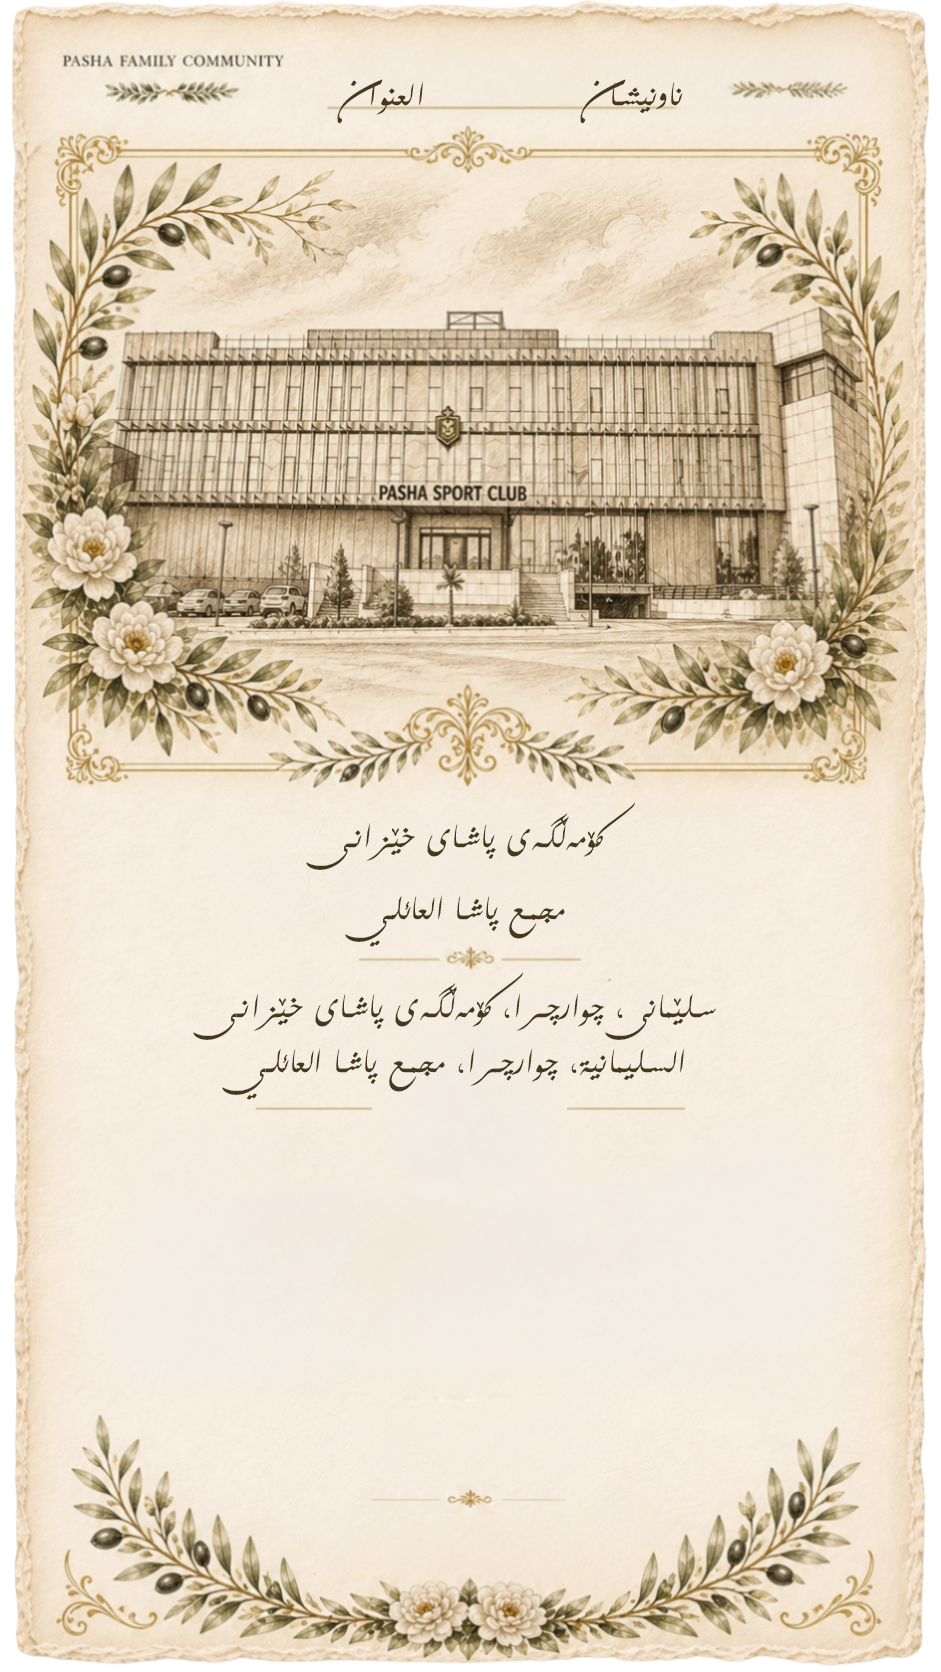 PASHA FAMILY COMMUNITY
ناونیشان
العنوان
PASHA SPORT CLUB
کۆمەڵگەی پاشای خێزانی
مجمع پاشا العائلي
سلێمانی ، چوارچرا، کۆمەڵگەی پاشای خێزانی
السليمانية، چوارچرا، مجمع پاشا العائلي